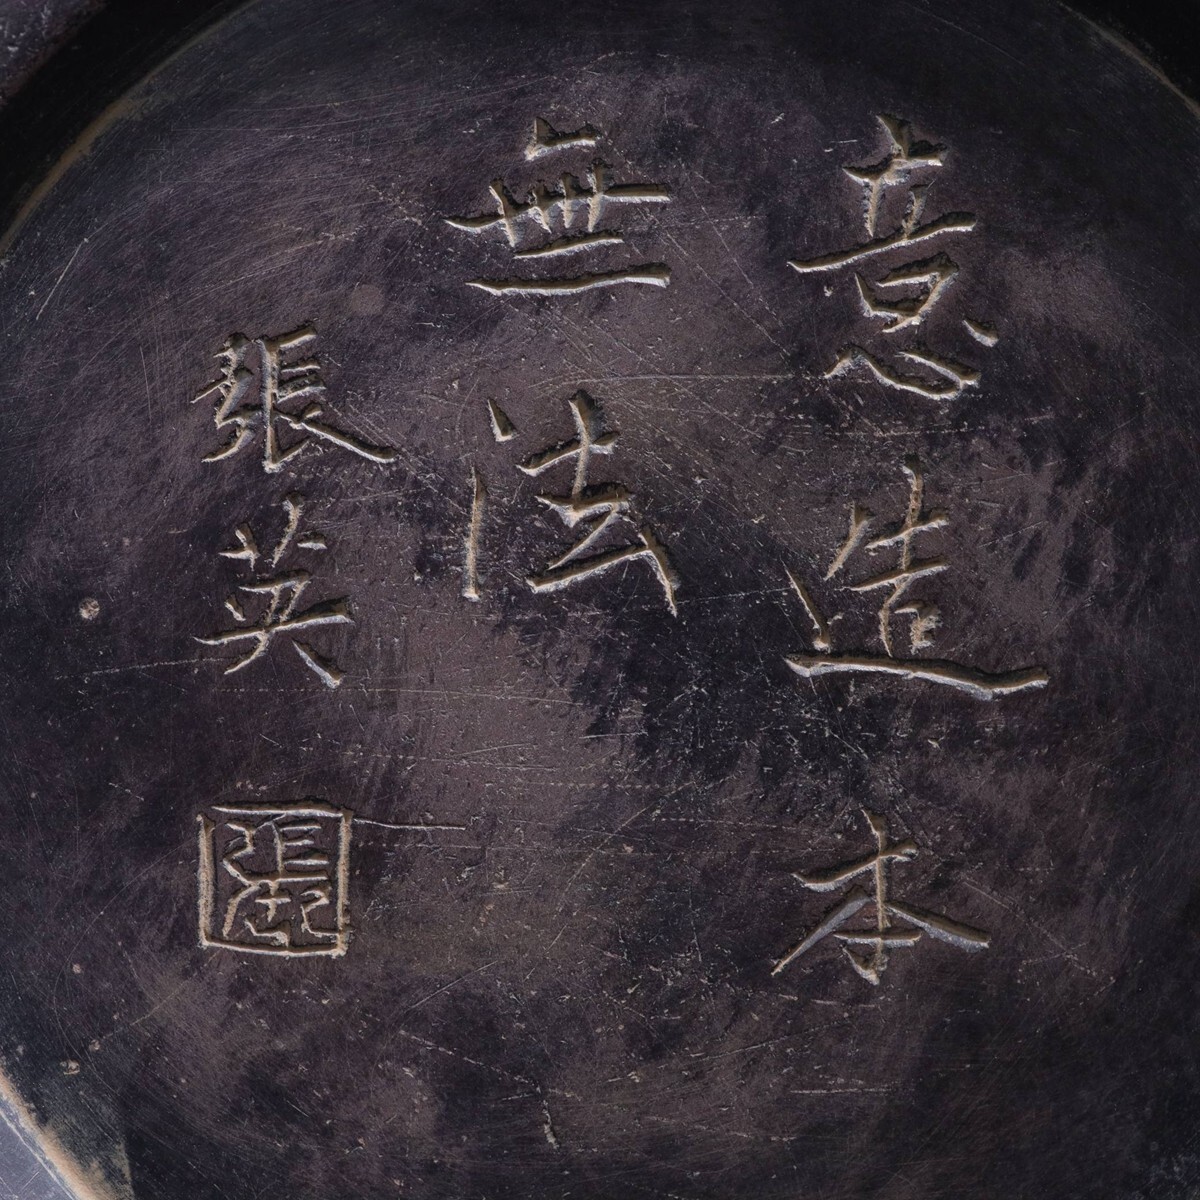 意造本
無法
張英